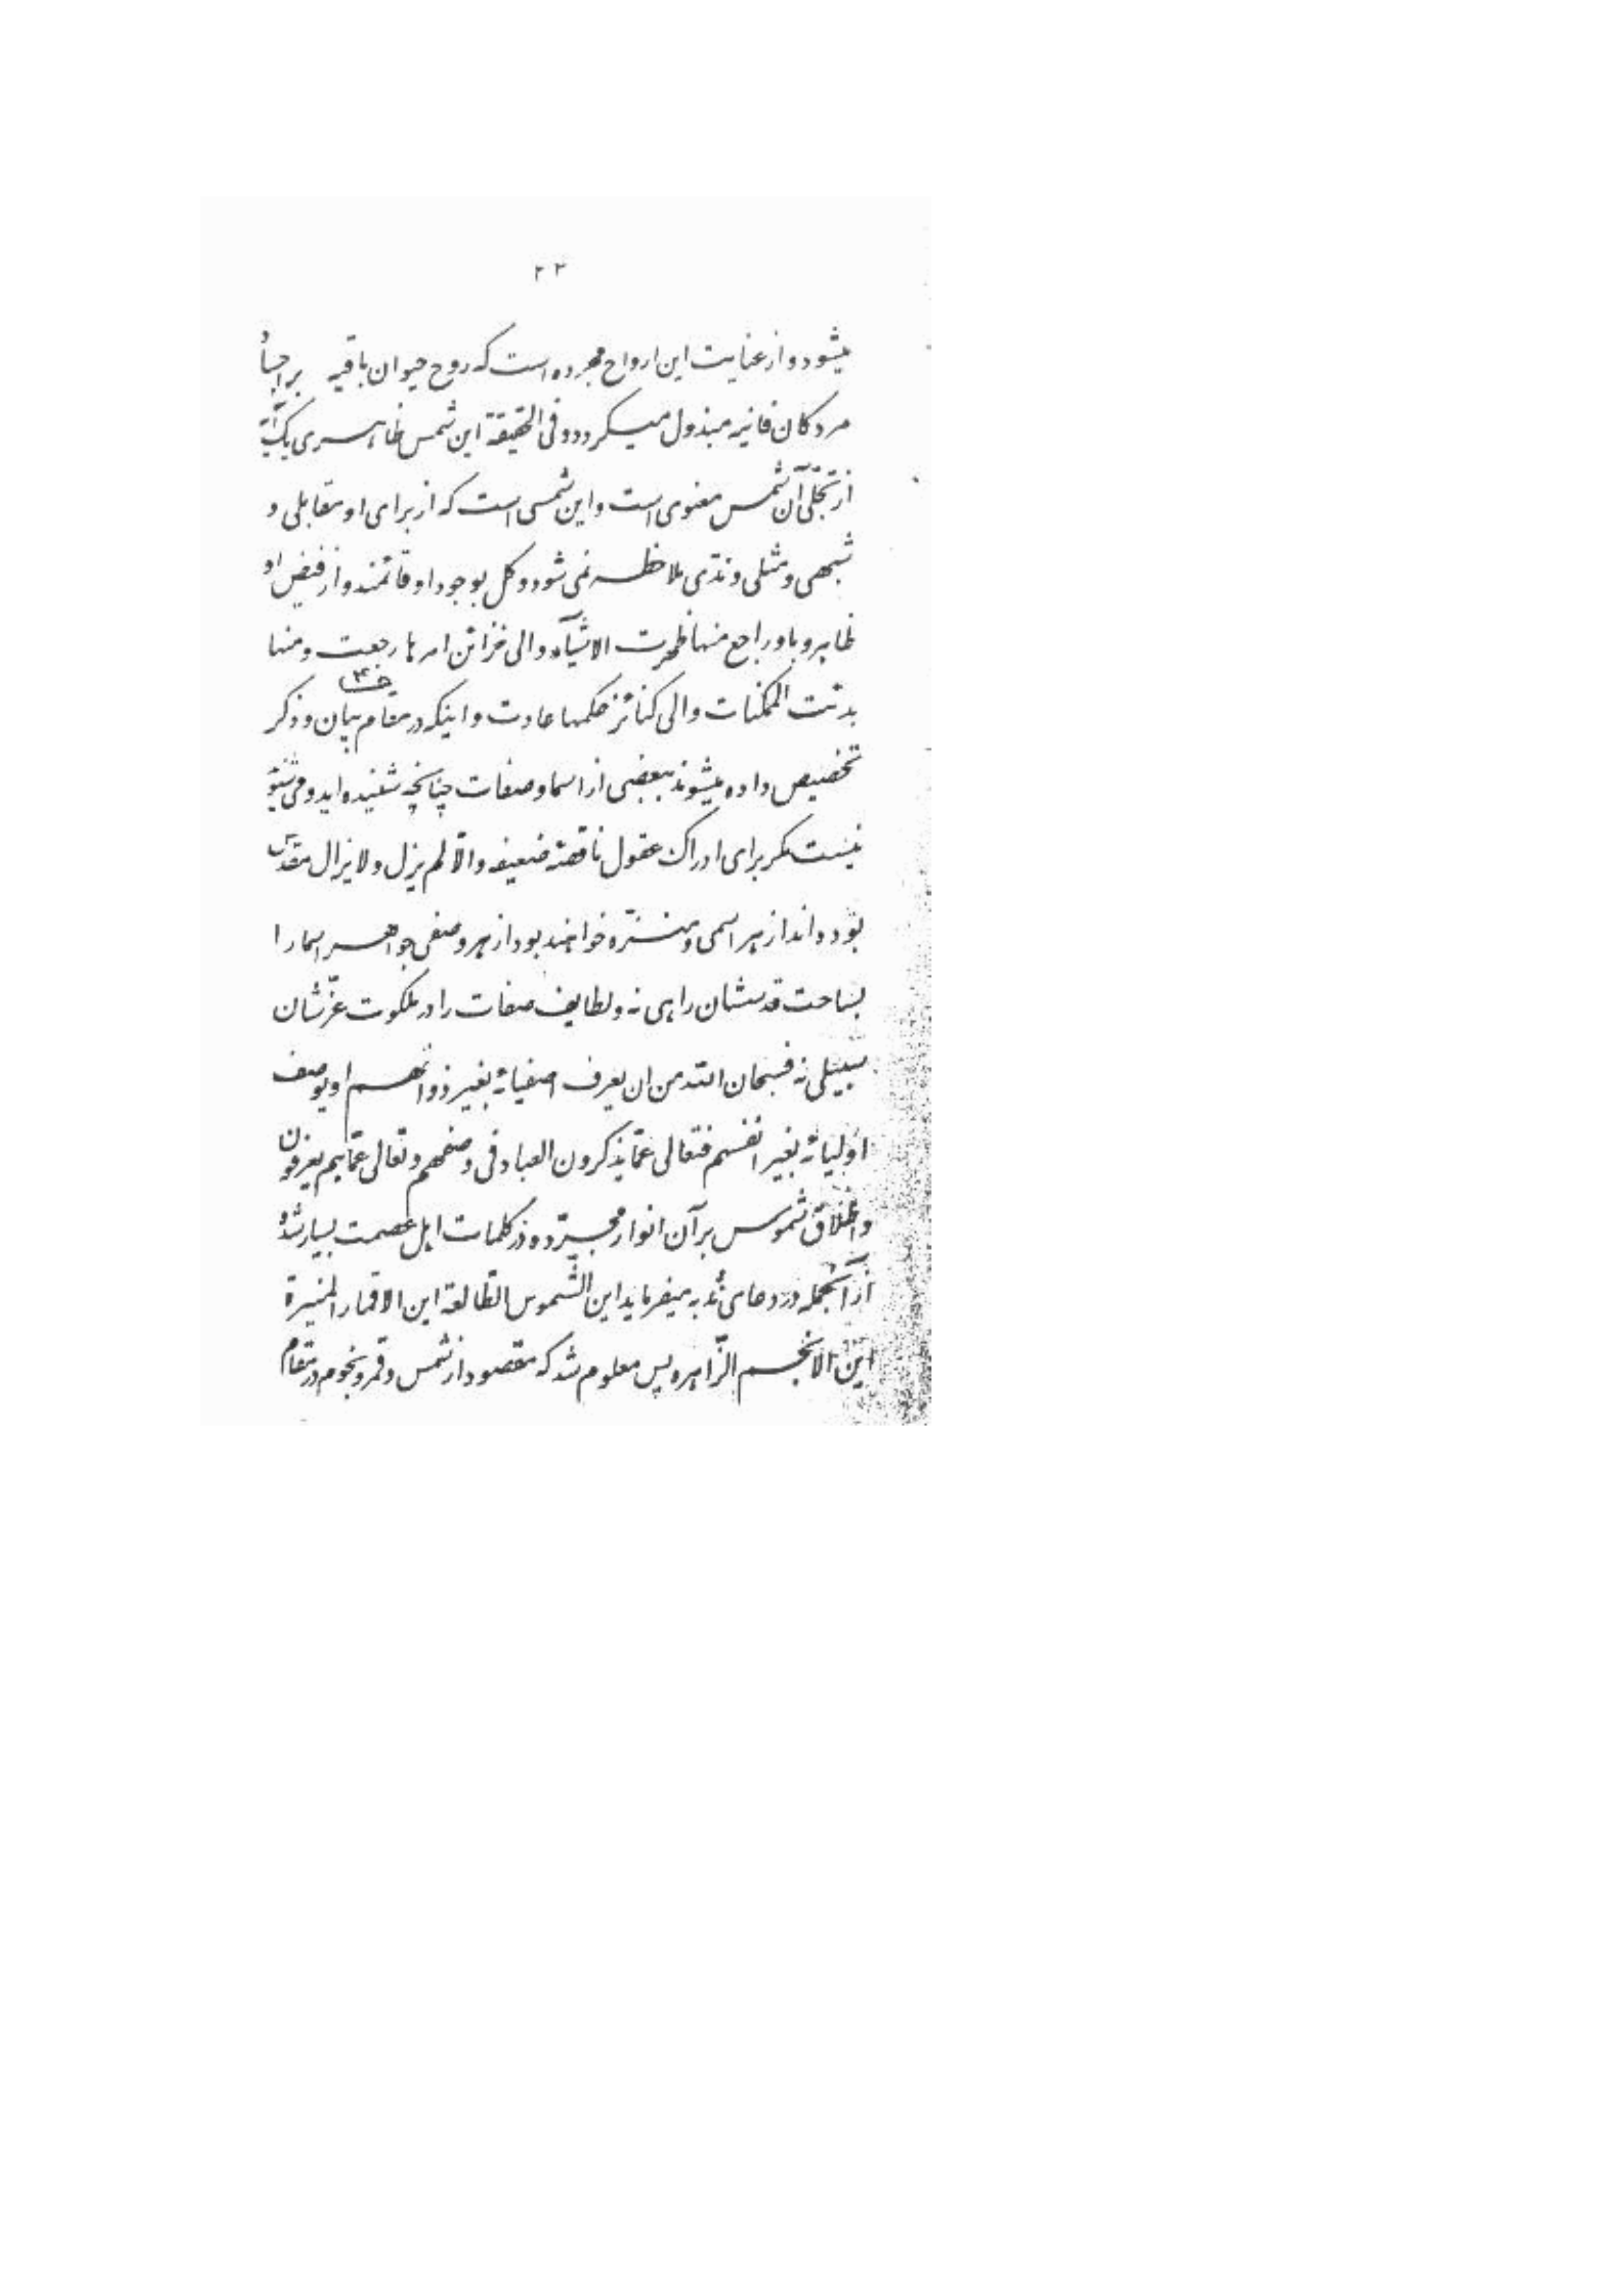 ۲۳
میشود و از عنایت این ارواح مجرده است که روح حیوان باقیه بر اجساد
مردگان فانیه مبذول میگردد و فی الحقیقة این شمس ظاهری یک آیه
از تجلّی آن شمس معنوی است و این شمسی است که از برای او مقابلی و
شبهی و مثلی و ندّی ملاحظه نمی شود و کل بوجود او قائمند و از فیض او
ظاهر و باو راجع منها ظهرت الاشیآء و الی خزائن امرها رجعت و منها
بدئت الممکنات و الی کنائز حکمها عادت و اینکه در مقام بیان و ذکر
تخصیص داده میشوند ببعضی از اسما و صفات چنانچه شنیده اید و می شنوید
نیست مگر برای ادراک عقول ناقصهٔ ضعیفه و الّا لم یزل و لا یزال مقدّس
بوده اند از هر اسمی و منزّه خواهند بود از هر وصفی جواهر اسما را
بساحت قدسشان راهی نه و لطایف صفات را در ملکوت عزّشان
سبیلی نه فسبحان اللّه من ان یعرف اصفیائه بغیر ذواتهم او یوصف
اولیائه بغیر انفسهم فتعالی عمّا یذکرون العباد فی وصفهم و تعالی عمّا هم یعرفون
و اطلاق شموس بر آن انوار مجرّده در کلمات اهل عصمت بسیار شده
از آنجمله در دعای ندبه میفرماید این الشّموس الطّالعة این الاقمار المنیرة
این الانجم الزّاهره پس معلوم شد که مقصود از شمس و قمر و نجوم در مقام